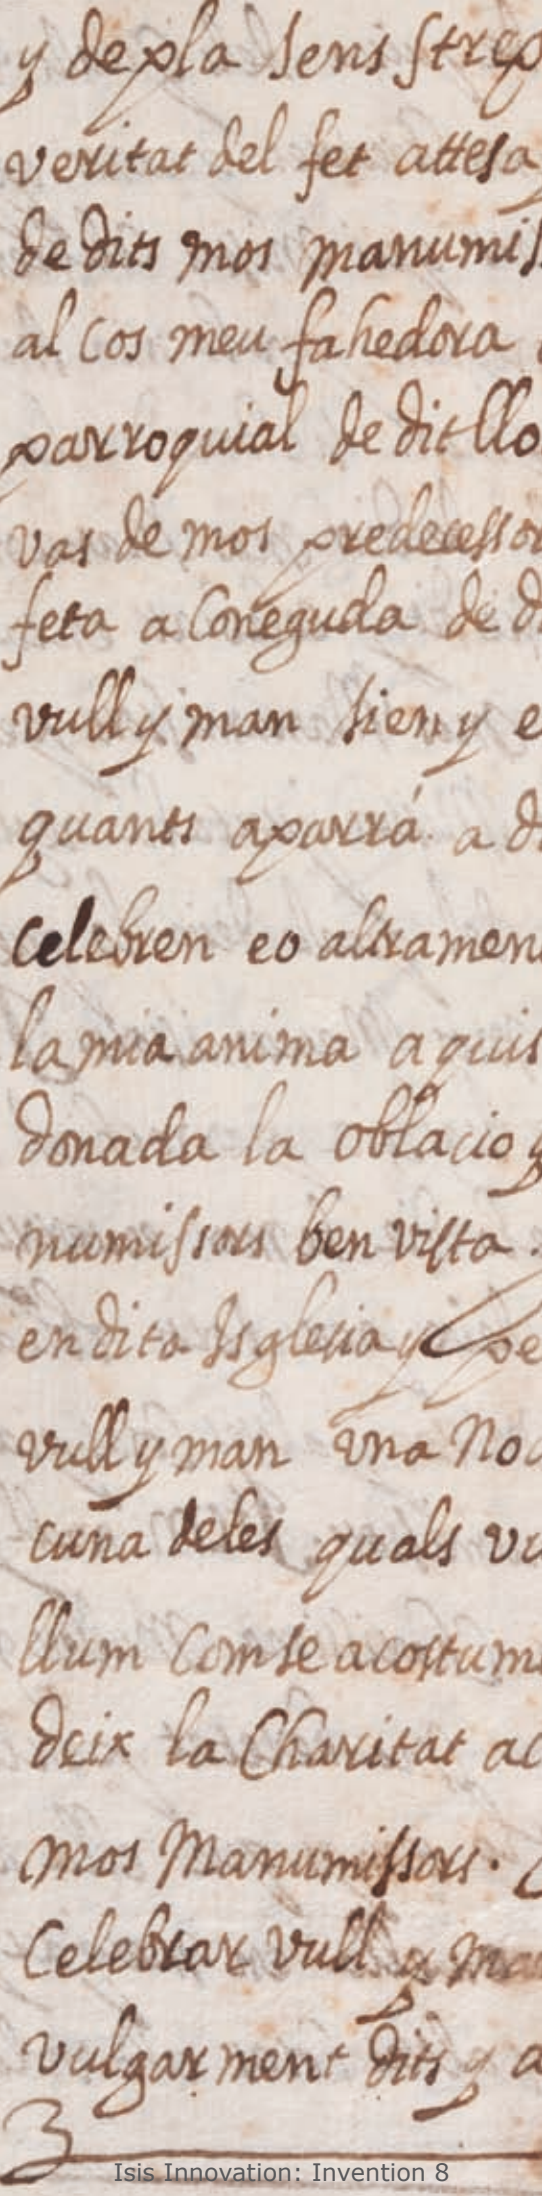 y de pla sens strep
veritat del fet attesa
de dits mos manumiss
al cos meu fahedora
parroquial de dit llo
vas de mos predecessor
feta a coneguda de d
vull y man sien y e
quants aparrá a d
celebren eo altramen
la mia anima a quis
donada la oblacio q
numissors ben vista.
en dita Isglesia y pe
vull y man una No
cuna de les quals vu
llum com se acostum
deix la Charitat ac
mos Manumissors.
Celebrar vull y ma
vulgarment dits y a
Isis Innovation: Invention 8